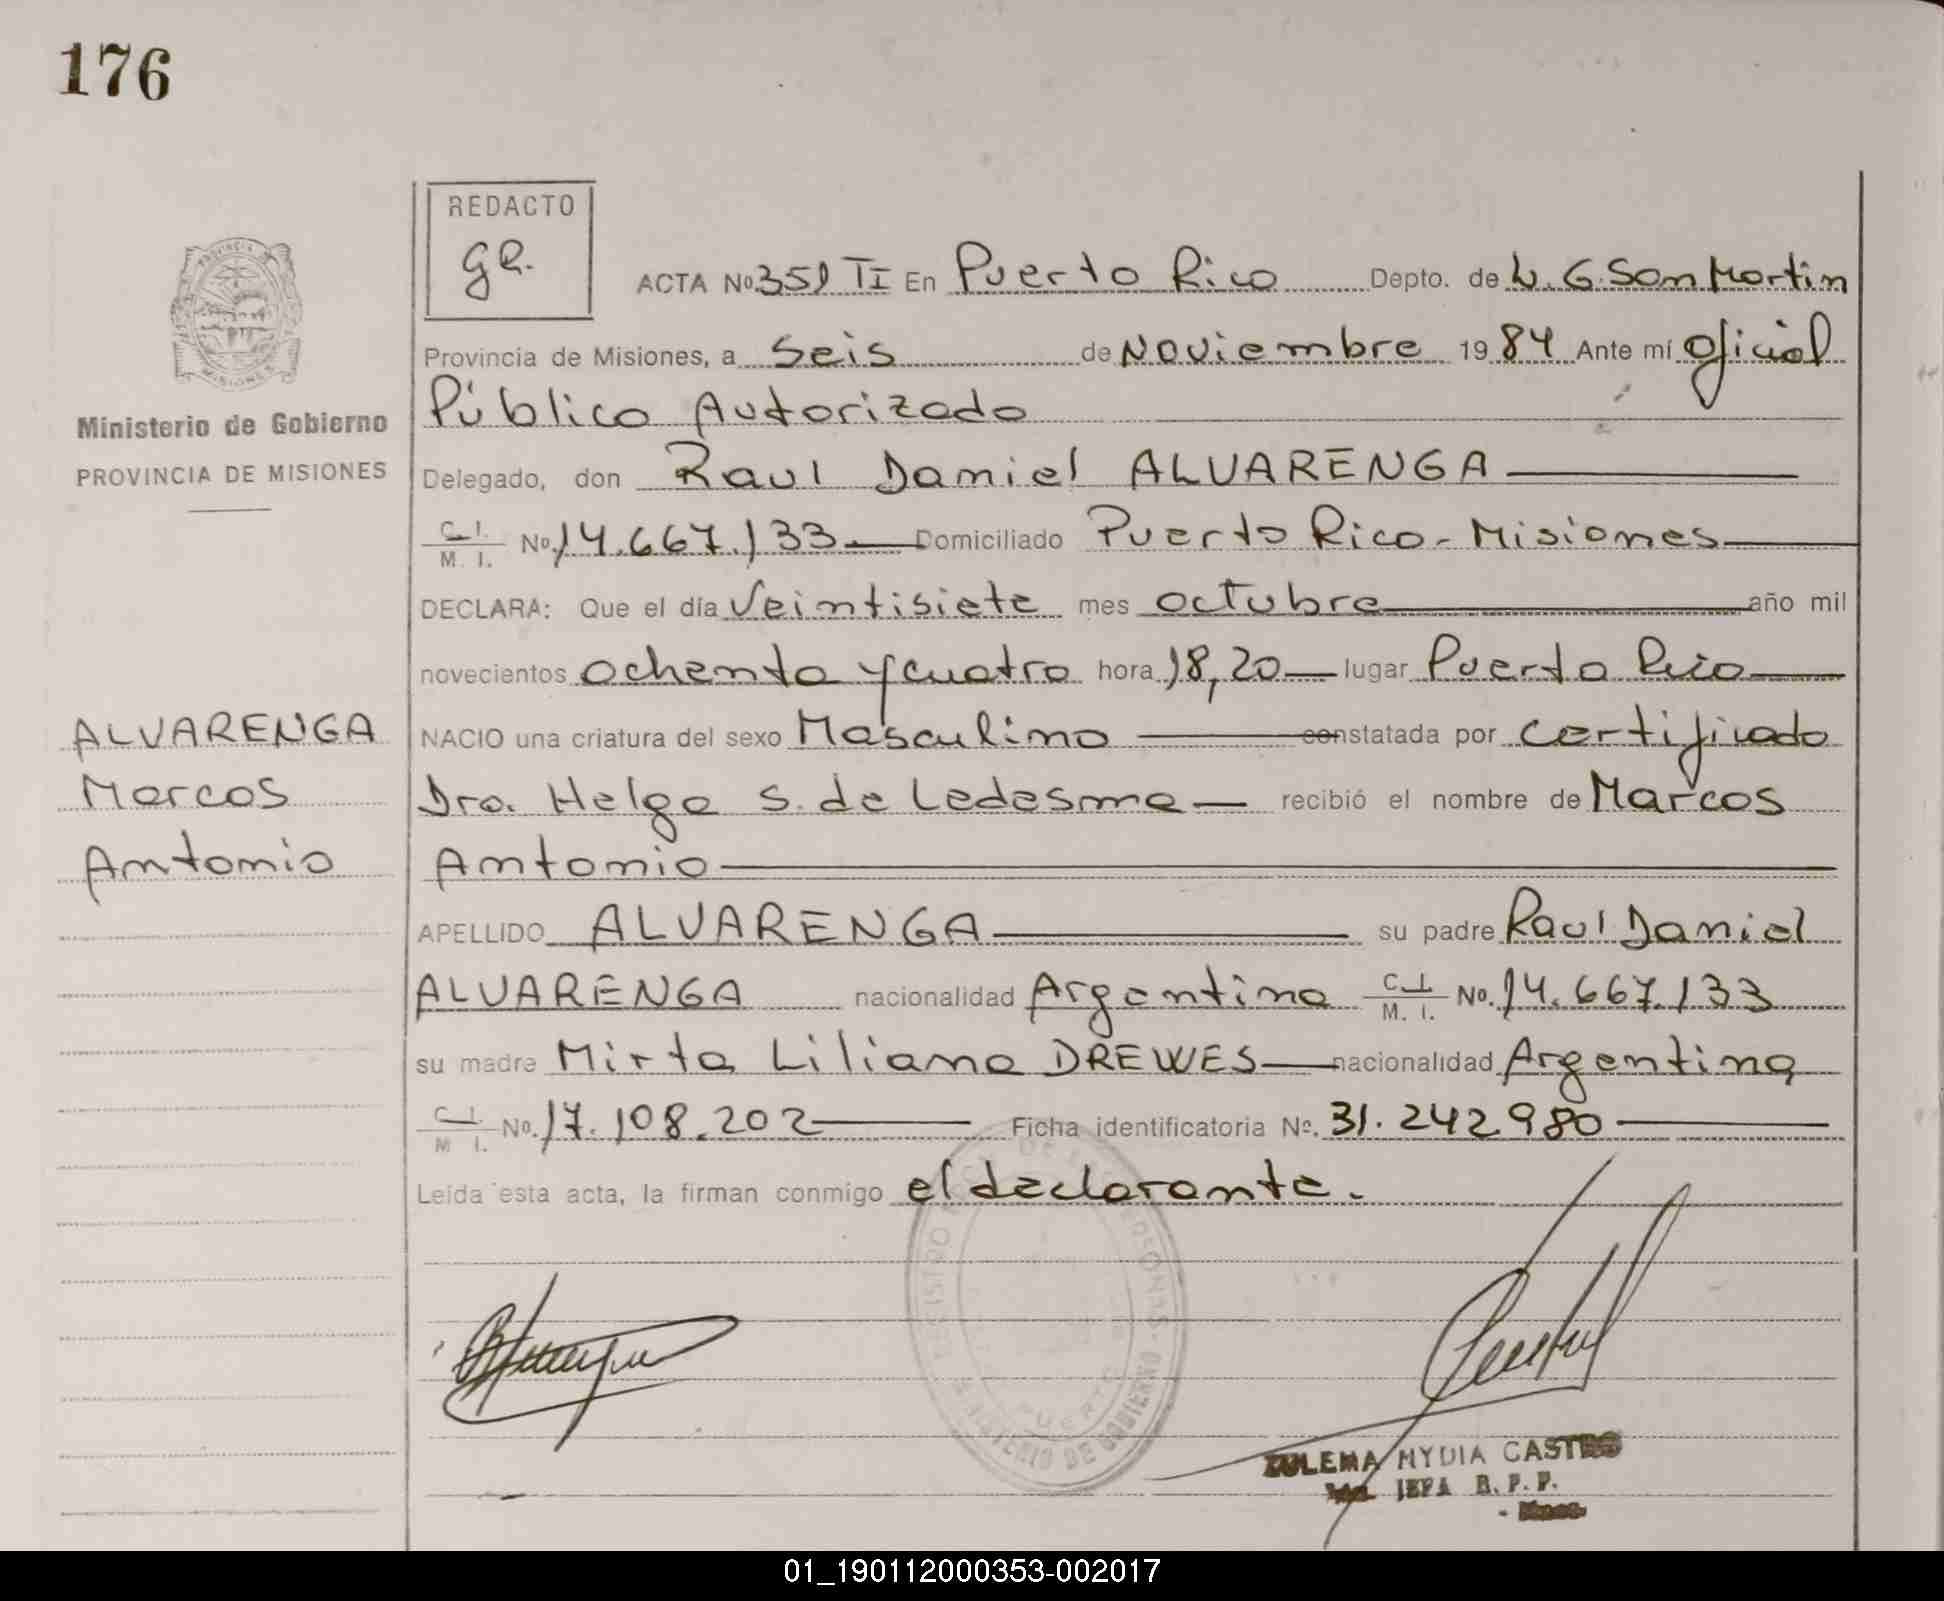 176
REDACTO
GR.
ACTA No 351 TI En Puerto Rico Depto. de L. G. San Martin
Provincia de Misiones, a Seis de Noviembre 1984 Ante mí Oficial
Público Autorizado
Delegado, don Raul Daniel ALVARENGA
C. I. M. I. No. 14.667.133 Domiciliado Puerto Rico - Misiones
DECLARA: Que el día Veintisiete mes octubre año mil
novecientos ochenta y cuatro hora 18,20 lugar Puerto Rico
NACIO una criatura del sexo Masculino constatada por certificado
Dra. Helga S. de Ledesma recibió el nombre de Marcos
Antonio
APELLIDO ALVARENGA su padre Raul Daniel
ALVARENGA nacionalidad Argentina C. I. M. I. No. 14.667.133
su madre Mirta Liliana DREWES nacionalidad Argentina
C. I. M. I. No. 17.108.202 Ficha identificatoria Nº. 31.242.980
Leída esta acta, la firman conmigo el declarante.
PROVINCIA
MISIONES
Ministerio de Gobierno
PROVINCIA DE MISIONES
ALVARENGA
Marcos
Antonio
REGISTRO DE LAS PERSONAS
PUERTO
MINISTERIO DE GOBIERNO
ZULEMA NYDIA CASTRO
JEFA R. P. P.
01_190112000353-002017